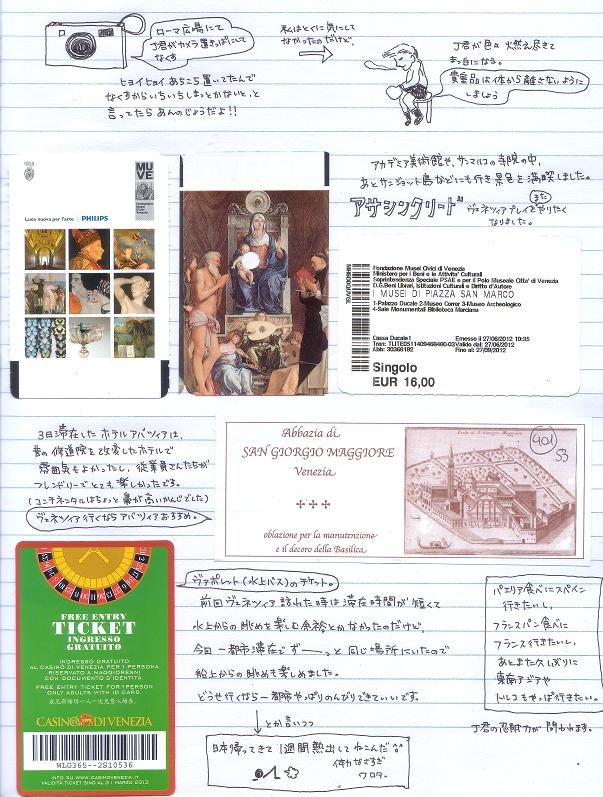 ローマ広場にて
J君がカメラ置きっぱにして
なくす
私はとくに気にして
なかったのだけど、
J君が色々燃え尽きて
まっ白になる。
貴重品は体から離さないように
しましょう
ヒョイヒョイあちこち置いてたんで
なくすからいちいちしまっとかないと、と
言ってたらあんのじょうだよ!!
MUVE
Luce nuova per l'arte PHILIPS
アカデミア美術館や、サンマルコの寺院の中、
あとサンジョット島などにも行き景色を満喫しました。
アサシンクリード
また
ヴェネツィアプレイでやりたく
なりました。
Fondazione Musei Civici di Venezia
Ministero per i Beni e le Attivita' Culturali
Soprintendenza Speciale PSAE e per il Polo Museale Citta' di Venezia
D.G.Beni Librari, Istituzioni Culturali e Diritto d'Autore
I MUSEI DI PIAZZA SAN MARCO
1-Palazzo Ducale 2-Museo Correr 3-Museo Archeologico
4-Sale Monumentali Biblioteca Marciana
Cassa Ducale1 Emesso il 27/06/2012 10:35
Tran: TLITE0511409468400-03 Valido dal: 27/06/2012
Abb: 30368192 Fino al: 27/09/2012
Singolo
EUR 16,00
3日滞在したホテルアバツィアは、
昔の修道院を改装したホテルで
雰囲気もよかったし、従業員さんたちが
フレンドリーでとても楽しかったです。
(コンチネンタルはちょっと鼻が高いかんじでした)
ヴェネツィア行くならアバツィアおすすめ。
Abbazia di
SAN GIORGIO MAGGIORE
Venezia
oblazione per la manutenzione
e il decoro della Basilica
401
53
FREE ENTRY
TICKET
INGRESSO
GRATUITO
INGRESSO GRATUITO
AL CASINÒ DI VENEZIA PER 1 PERSONA
RISERVATO A MAGGIORENNI
CON DOCUMENTO D'IDENTITÀ.
FREE ENTRY TICKET FOR 1 PERSON
ONLY ADULTS WITH ID CARD.
CASINÒ DI VENEZIA
WLG365--2S10536
INFO SU WWW.CASINOVENEZIA.IT
VALIDITÀ TICKET SINO AL 31 MARZO 2013
ヴァポレット(水上バス)のチケット。
前回ヴェネツィア訪れた時は滞在時間が短くて
水上からの眺めを楽しむ余裕とかなかったのだけど、
今回一都市滞在でず――っと同じ場所にいたので
船上からの眺めも楽しめました。
どうせ行くなら一都市やっぱりのんびりできていいです。
とか言いつつ
日本帰ってきて1週間熱出してねこんだ
体力なさすぎ
ワロタ。
パエリア食べにスペイン
行きたいし、
フランスパン食べに
フランス行きたいし、
あとまた久しぶりに
東南アジアや
トルコもやっぱ行きたい。
J君の忍耐力が問われます。